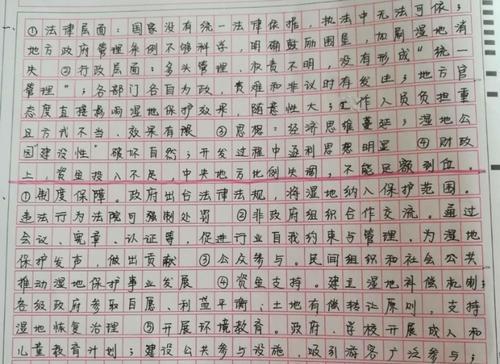 ①法律层面：国家没有统一法律依据，执法中无法可依；
地方政府管理条例不够科学，明确鼓励围垦，加剧湿地消
失 ②行政层面：多头管理、权责不明，没有形成"统一
管理"；各部门各自为政，责难和非议时有发生；地方官
态度直接影响湿地保护效果，随意性大；工作人员负担重
且方式不当，效果有限 ③思想：经济思维蔓延；湿地公
园"建设性"破坏自然；开发过程中盈利思想明显 ④财政
上，资金投入不足，中央地方比例失调，不能足额到位
①制度保障。政府出台法律法规，将湿地纳入保护范围。
违法行为法院可强制处罚 ②非政府组织合作交流。通过
会议、宪章、认证等，促进行业自我约束与管理，为湿地
保护发声，做出贡献 ③公众参与。民间组织和社会公共
推动湿地保护事业发展 ④资金支持。建立湿地补偿机制；
各级政府参取自愿、利益平衡、土地有偿转让原则，支持
湿地恢复治理 ⑤开展环境教育。政府、学校开展成人和
儿童教育计划；建设公共参与设施，吸引游客广泛参与；